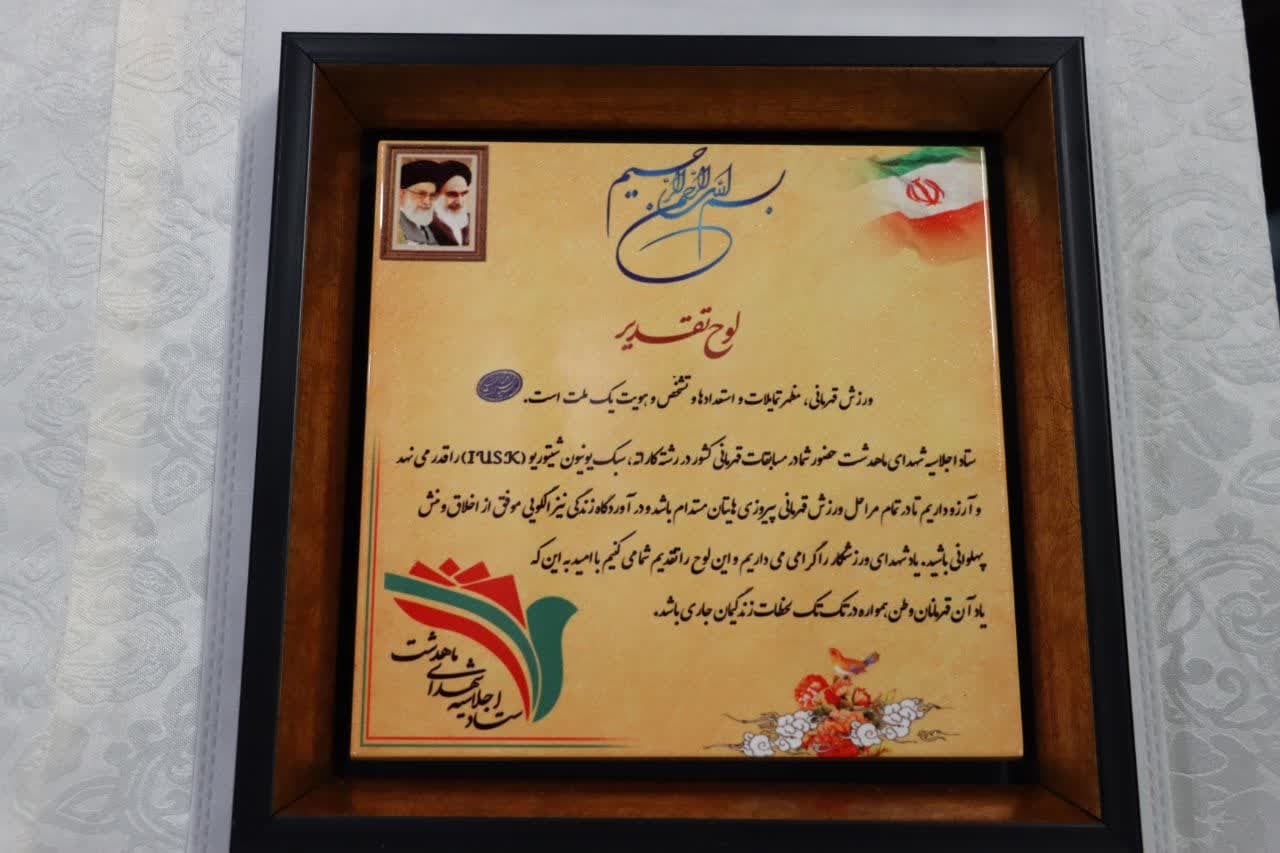 بسم الله الرحمن الرحیم
لوح تقدیر
ورزش قهرمانی، مظهر تمایلات و استعدادها و تشخّص و هویت یک ملت است.
ستاد اجلاسیه شهدای ماهدشت حضور شما در مسابقات قهرمانی کشور در رشته کاراته، سبک یونیون شیتوریو (IUSK) را قدر می نهد
و آرزو داریم تا در تمام مراحل ورزش قهرمانی پیروزی هایتان مستدام باشد و در آوردگاه زندگی نیز الگویی موفق از اخلاق و منش
پهلوانی باشید. یاد شهدای ورزشکار را گرامی می داریم و این لوح را تقدیم شما می کنیم با امید به این که
یاد آن قهرمانان وطن، همواره در تک تک لحظات زندگیمان جاری باشد.
ستاد اجلاسیه شهدای ماهدشت